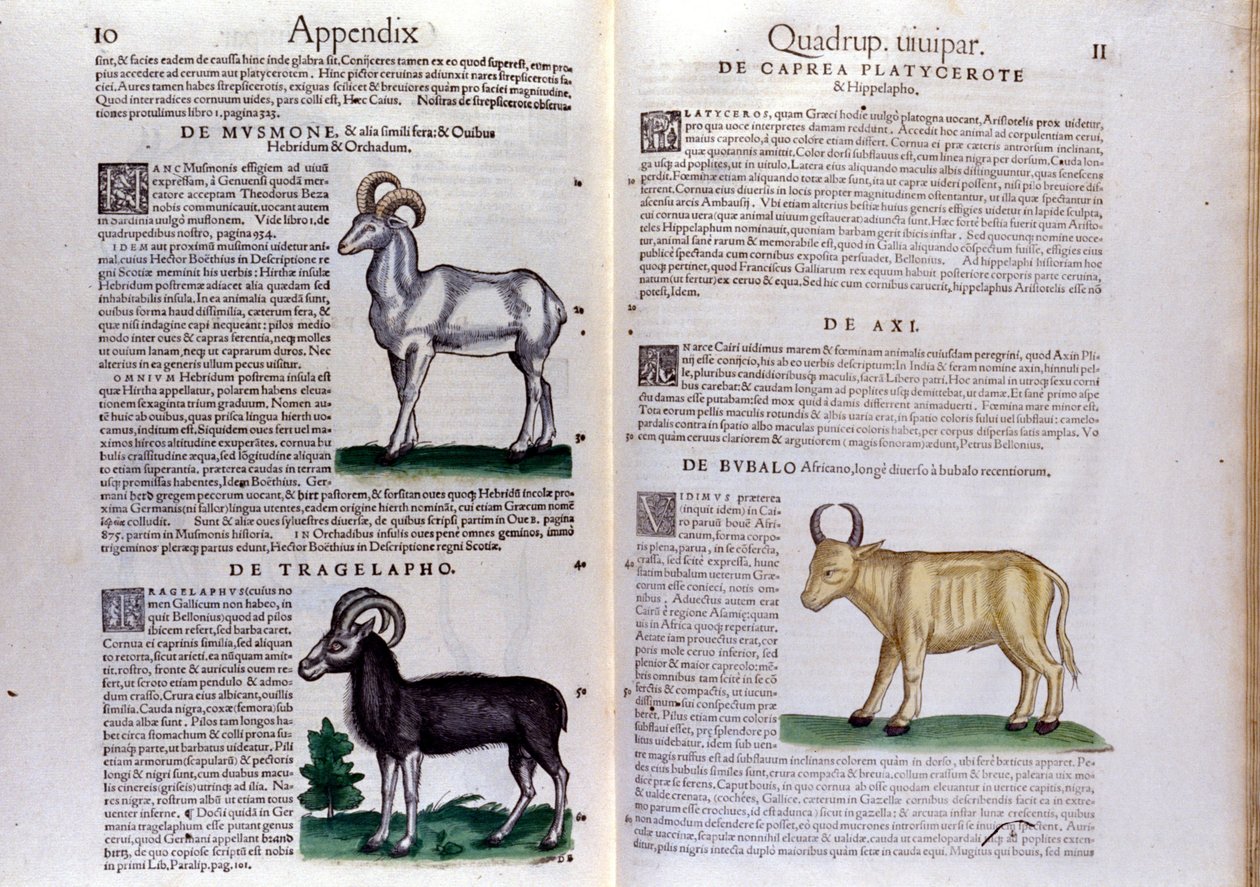 10
Appendix
sint, & facies eadem de caussa hinc inde glabra sit. Conijceres tamen ex eo quod superest, eum pro=
pius accedere ad ceruum aut platycerotem. Hinc pictor ceruinas adiunxit nares strepsicerotis fa=
ciei. Aures tamen habes strepsicerotis, exiguas scilicet & breuiores quàm pro faciei magnitudine.
Quod inter radices cornuum uides, pars colli est, Hæc Caius. Nostras de strepsicerote obserua=
tiones protulimus libro 1. pagina 323.
DE MVSMONE, & alia simili fera: & Ouibus
Hebridum & Orchadum.
HANC Musmonis effigiem ad uiuũ
expressam, à Genuensi quodã mer=
catore acceptam Theodorus Beza
nobis communicauit, uocant autem
in Sardinia uulgò muflonem. Vide libro 1. de
quadrupedibus nostro, pagina 934.
IDEM aut proximũ musmoni uidetur ani=
mal, cuius Hector Boëthius in Descriptione re
gni Scotiæ meminit his uerbis: Hirthæ insulæ
Hebridum postremæ adiacet alia quædam sed
inhabitabilis insula. In ea animalia quædã sunt,
ouibus forma haud dissimilia, cæterum fera, &
quæ nisi indagine capi nequeant: pilos medio
modo inter oues & capras ferentia, neq; molles
ut ouium lanam, neq; ut caprarum duros. Nec
alterius in ea generis ullum pecus uisitur.
OMNIVM Hebridum postrema insula est
quæ Hirtha appellatur, polarem habens eleua=
tionem sexaginta trium graduum. Nomen au=
tē huic ab ouibus, quas prisca lingua hierth uo=
camus, inditum est. Siquidem oues fert uel ma=
ximos hircos altitudine exuperãtes, cornua bu
bulis crassitudine æqua, sed lõgitudine aliquan
to etiam superantia. præterea caudas in terram
usq; promissas habentes, Idem Boëthius. Ger=
mani herd gregem pecorum uocant, & hirt pastorem, & forsitan oues quoq; Hebridũ incolæ pro=
xima Germanis (ni fallor) lingua utentes, eadem origine hierth nominãt, cui etiam Græcum nomē
colludit. Sunt & aliæ oues syluestres diuersæ, de quibus scripsi partim in Oue B. pagina
875. partim in Musmonis historia. IN Orchadibus insulis oues penè omnes geminos, immò
trigeminos pleræq; partus edunt, Hector Boëthius in Descriptione regni Scotiæ.
DE TRAGELAPHO.
TRAGELAPHVS (cuius no
men Gallicum non habeo, in
quit Bellonius) quod ad pilos
ibicem refert, sed barba caret.
Cornua ei caprinis similia, sed aliquan
to retorta, sicut arieti. ea nũquam amit=
tit. rostro, fronte & auriculis ouem re=
fert, ut scroto etiam pendulo & admo=
dum crasso. Crura eius albicant, ouillis
similia. Cauda nigra, coxæ (femora) sub
cauda albæ sunt. Pilos tam longos ha=
bet circa stomachum & colli prona su=
pinaq; parte, ut barbatus uideatur. Pili
etiam armorum (scapularũ) & pectoris
longi & nigri sunt, cum duabus macu
lis cinereis (griseis) utrinq; ad ilia. Na=
res nigræ, rostrum albũ ut etiam totus
uenter inferne. ¶ Docti quidã in Ger
mania tragelaphum esse putant genus
cerui, quod Germani appellant brand
hirtz, de quo copiose scriptũ est nobis
in primi Lib. Paralip. pag. 101.
10
20
30
40
50
60
Quadrup. uiuipar.
11
DE CAPREA PLATYCEROTE
& Hippelapho.
PLATYCEROS, quam Græci hodie uulgò platogna uocant, Aristotelis prox uidetur,
pro qua uoce interpretes damam reddunt. Accedit hoc animal ad corpulentiam cerui,
maius capreolo, à quo colore etiam differt. Cornua ei præ cæteris antrorsum inclinant,
quæ quotannis amittit. Color dorsi subflauus est, cum linea nigra per dorsum. Cauda lon=
ga usq; ad poplites, ut in uitulo. Latera eius aliquando maculis albis distinguuntur, quas senescens
perdit. Fœminæ etiam aliquando totæ albæ sunt, ita ut capræ uideri possent, nisi pilo breuiore dif=
ferrent. Cornua eius diuersis in locis propter magnitudinem ostentantur, ut illa quæ spectantur in
ascensu arcis Ambausij. Vbi etiam alterius bestiæ huius generis effigies uidetur in lapide sculpta,
cui cornua uera (quæ animal uiuum gestauerat) adiuncta sunt. Hæc fortè bestia fuerit quam Aristo=
teles Hippelaphum nominauit, quoniam barbam gerit ibicis instar. Sed quocunq; nomine uoce=
tur, animal sanè rarum & memorabile est, quod in Gallia aliquando cõspectum fuisse, effigies eius
publicè spectanda cum cornibus exposita persuadet, Bellonius. Ad hippelaphi historiam hoc
quoq; pertinet, quod Franciscus Galliarum rex equum habuit posteriore corporis parte ceruina,
natum (ut fertur) ex ceruo & equa. Sed hic cum cornibus caruerit, hippelaphus Aristotelis esse nõ
potest, Idem.
DE AXI.
IN arce Cairi uidimus marem & fœminam animalis cuiusdam peregrini, quod Axin Pli=
nij esse conijcio, his ab eo uerbis descriptum: In India & feram nomine axin, hinnuli pel=
le, pluribus candidioribusq; maculis, sacrã Libero patri. Hoc animal in utroq; sexu corni
bus carebat: & caudam longam ad poplites usq; demittebat, ut damæ. Et sanè primo aspe
ctu damas esse putabam: sed mox quid à damis differrent animaduerti. Fœmina mare minor est,
Tota eorum pellis maculis rotundis & albis uaria erat, in spatio coloris fului uel subflaui: camelo=
pardalis contra in spatio albo maculas punicei coloris habet, per corpus dispersas satis amplas. Vo
cem quàm ceruus clariorem & argutiorem (magis sonoram) ædunt, Petrus Bellonius.
DE BVBALO Africano, longè diuerso à bubalo recentiorum.
VIDIMVS præterea
(inquit idem) in Cai=
ro paruũ bouē Afri=
canum, forma corpo=
ris plena, parua, in se cõferta,
crassa, sed scitè expressa, hunc
statim bubalum ueterum Græ=
corum esse conieci, notis om=
nibus. Aduectus autem erat
Cairũ è regione Asamiæ: quam
uis in Africa quoq; reperiatur.
Aetate iam prouectus erat, cor
poris mole ceruo inferior, sed
plenior & maior capreolo: mē=
bris omnibus tam scitè in se cõ
sertis & compactis, ut iucun=
dissimum sui conspectum præ
beret. Pilus etiam cum coloris
subflaui esset, præ splendore po
litus uidebatur. idem sub uen=
tre magis ruffus est ad subflauum inclinans colorem quàm in dorso, ubi ferè bæticus apparet. Pe=
des eius bubulis similes sunt, crura compacta & breuia, collum crassum & breue, palearia uix mo=
dicè præ se ferens. Caput bouis, in quo cornua ab osse quodam eleuantur in uertice capitis, nigra,
& ualde crenata, (cochées, Gallicè. cæterum in Gazellæ cornibus describendis facit ea in extre=
mo parum esse crochues, id est adunca) sicut in gazella: & arcuata instar lunæ crescentis, quibus
non admodum defendere se posset, eò quod mucrones introrsum uersi se inuicem spectent. Auri=
culæ uaccinæ, scapulæ nonnihil eleuatæ & ualidæ, cauda ut camelopardali usq; ad poplites exten
ditur, pilis nigris intecta duplò maioribus quàm setæ in cauda equi. Mugitus qui bouis, sed minus
10
20
30
40
50
60